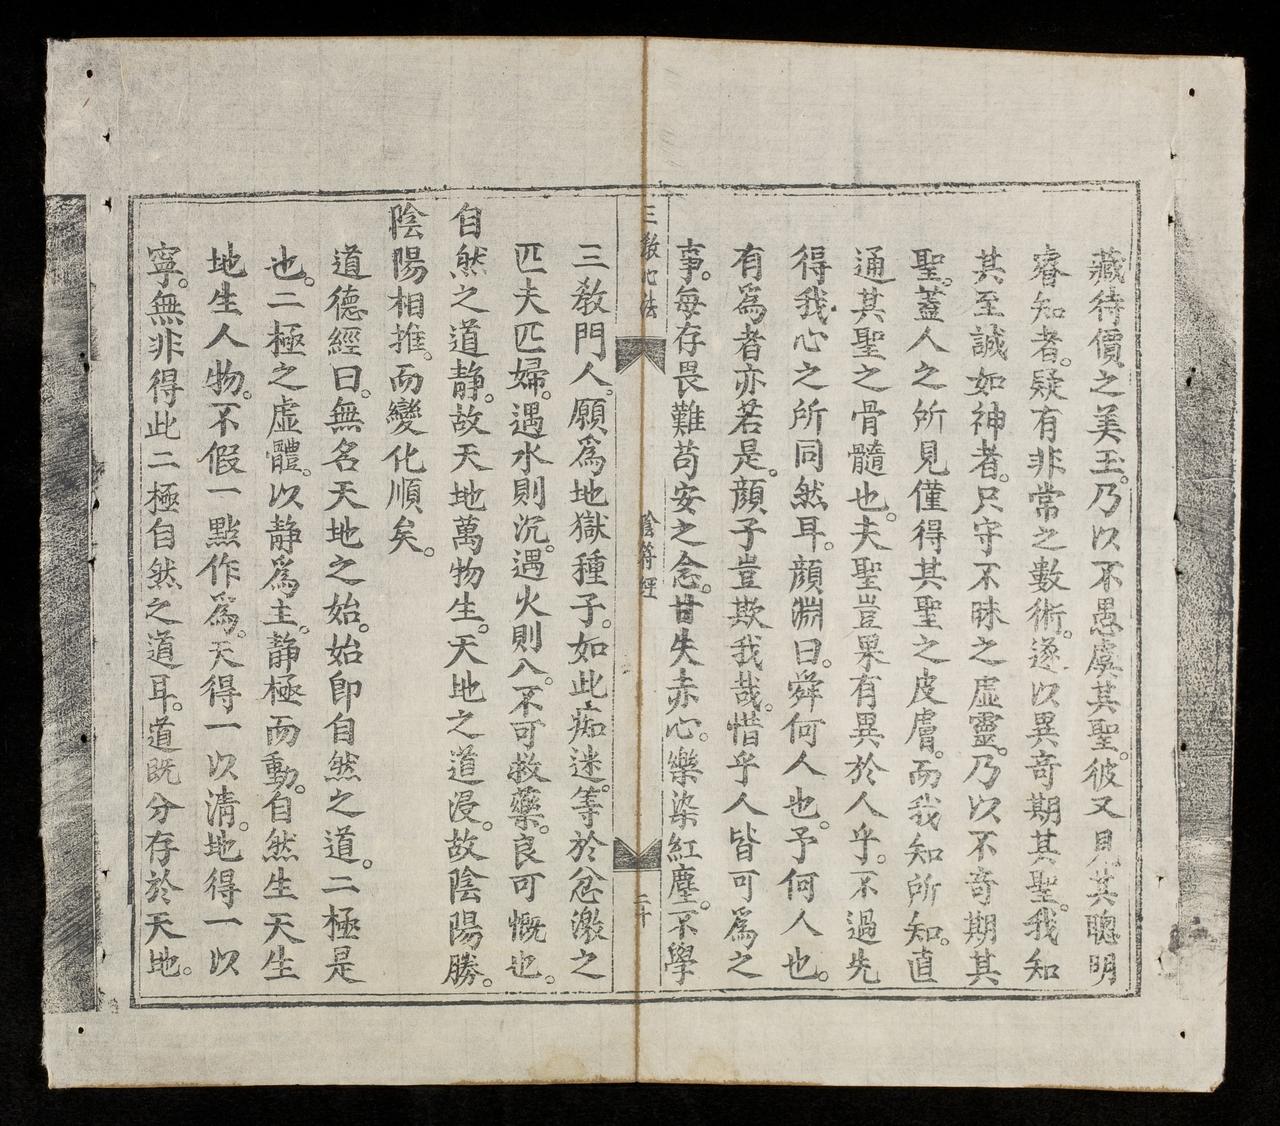 藏待價之美玉。乃以不愚虞其聖。彼又見其聰明
睿知者。疑有非常之數術。遂以異奇期其聖。我知
其至誠如神者。只守不昧之虛靈。乃以不奇期其
聖。蓋人之所見僅得其聖之皮膚。而我知所知。直
通其聖之骨髓也。夫聖豈果有異於人乎。不過先
得我心之所同然耳。顏淵曰。舜何人也。予何人也。
有爲者亦若是。顏子豈欺我哉。惜乎人皆可爲之
事。每存畏難苟安之念。甘失赤心。樂染紅塵。不學
三教心法
陰符經
二十
三教門人。願爲地獄種子。如此痴迷。等於忿激之
匹夫匹婦。遇水則沉。遇火則入。不可救藥。良可慨也。
自然之道静。故天地萬物生。天地之道浸。故陰陽勝。
陰陽相推。而變化順矣。
道德經曰。無名天地之始。始卽自然之道。二極是
也。二極之虛體。以静爲主。静極而動。自然生天生
地生人物。不假一點作爲。天得一以清。地得一以
寧。無非得此二極自然之道耳。道既分存於天地。